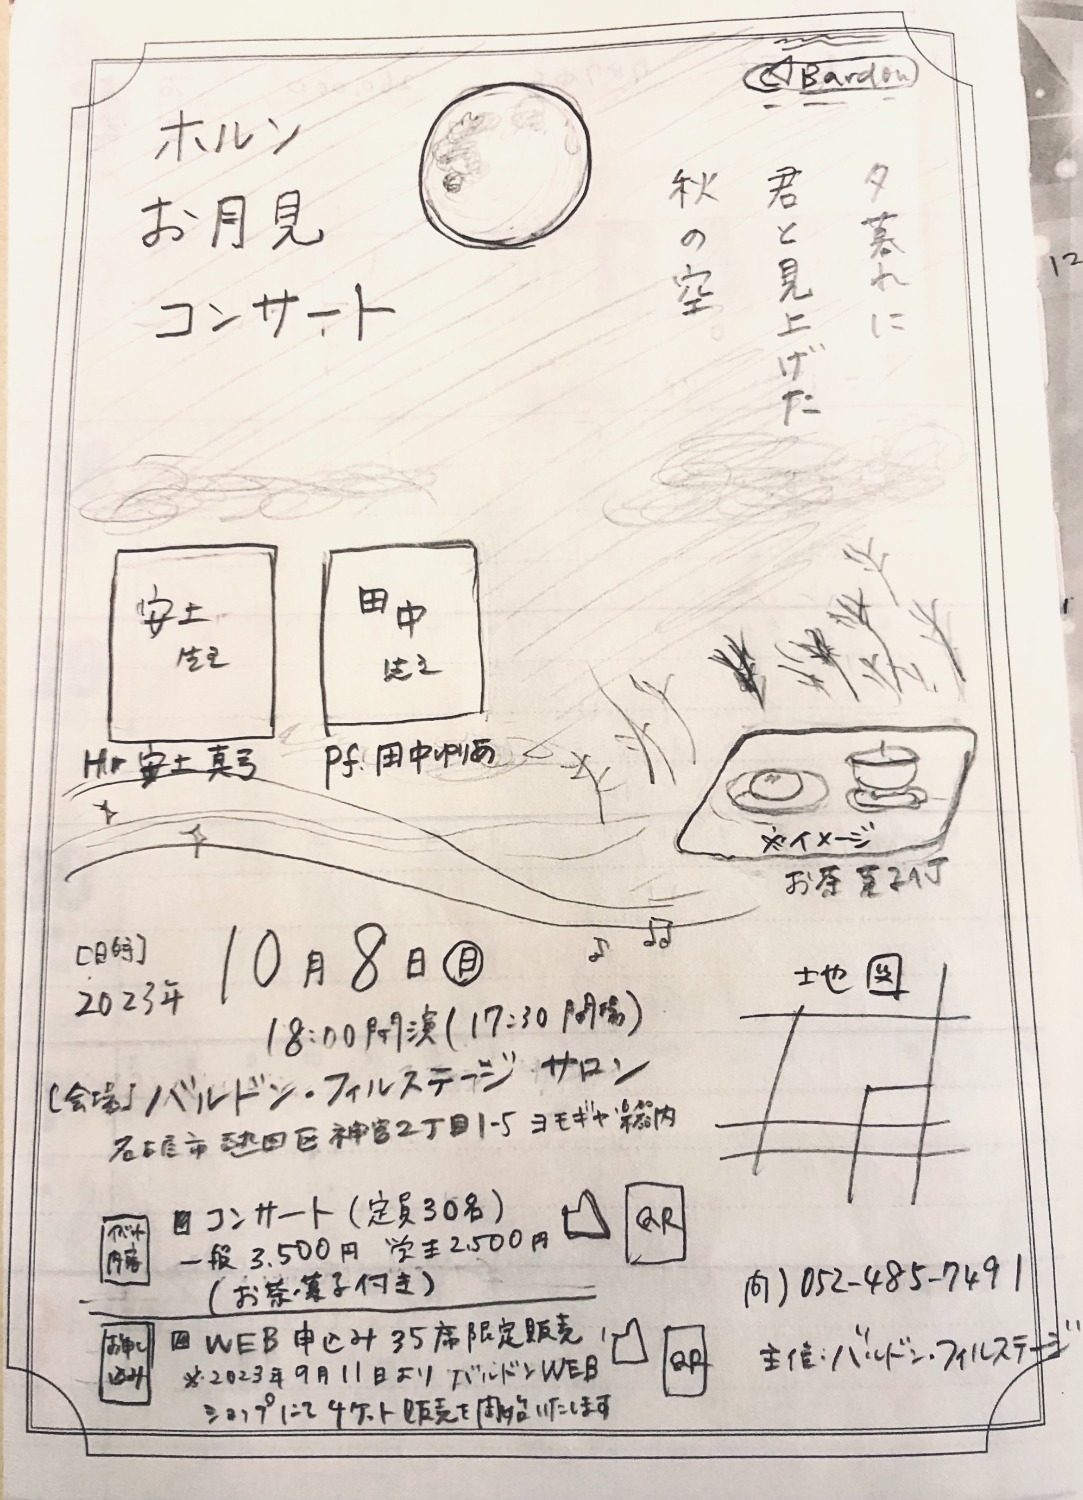 Bardon
ホルン
お月見
コンサート
夕暮れに
君と見上げた
秋の空。
12
安土
先生
田中
先生
Hr 安土真弓
Pf. 田中ゆりあ
※イメージ
お茶菓子付
[日時]
2023年 10月8日㊊
18:00開演(17:30開場)
[会場]バルドン・フィルステージ サロン
名古屋市熱田区神宮2丁目1-5 ヨモギヤ楽器内
地図
イベント
内容
コンサート(定員30名)
一般3.500円 学生2.500円
(お茶・菓子付き)
QR
お申し
込み
WEB申込み 35席限定販売
※2023年9月11日より バルドンWEB
ショップにてチケット販売を開始いたします
QR
問)052-485-7491
主催:バルドン・フィルステージ